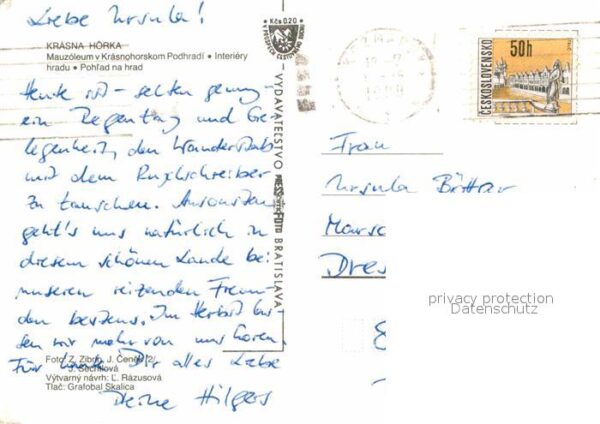 Liebe Ursula!
KRÁSNA HÔRKA
Mauzóleum v Krásnohorskom Podhradí • Interiéry
hradu • Pohľad na hrad
Heute ist – selten genug –
ein Regentag und Ge-
legenheit, den Wanderstab
mit dem Kugelschreiber
zu tauschen. Ansonsten
geht's uns natürlich in
diesem schönen Lande bei
unseren reizenden Freun-
den bestens. Im Herbst
wir mehr von uns hören.
Für heute Dir alles Liebe
Deine Hilgers
Foto: Z. Zibrín, J. Čeněk /2/
J. Sechtlová
Výtvarný návrh: Ľ. Rázusová
Tlač: Grafobal Skalica
Kčs 0,20
VYDAVATEĽSTVO PRESSFOTO BRATISLAVA
ČESKOSLOVENSKO
50h
Frau
Ursula
Dres
privacy protection
Datenschutz